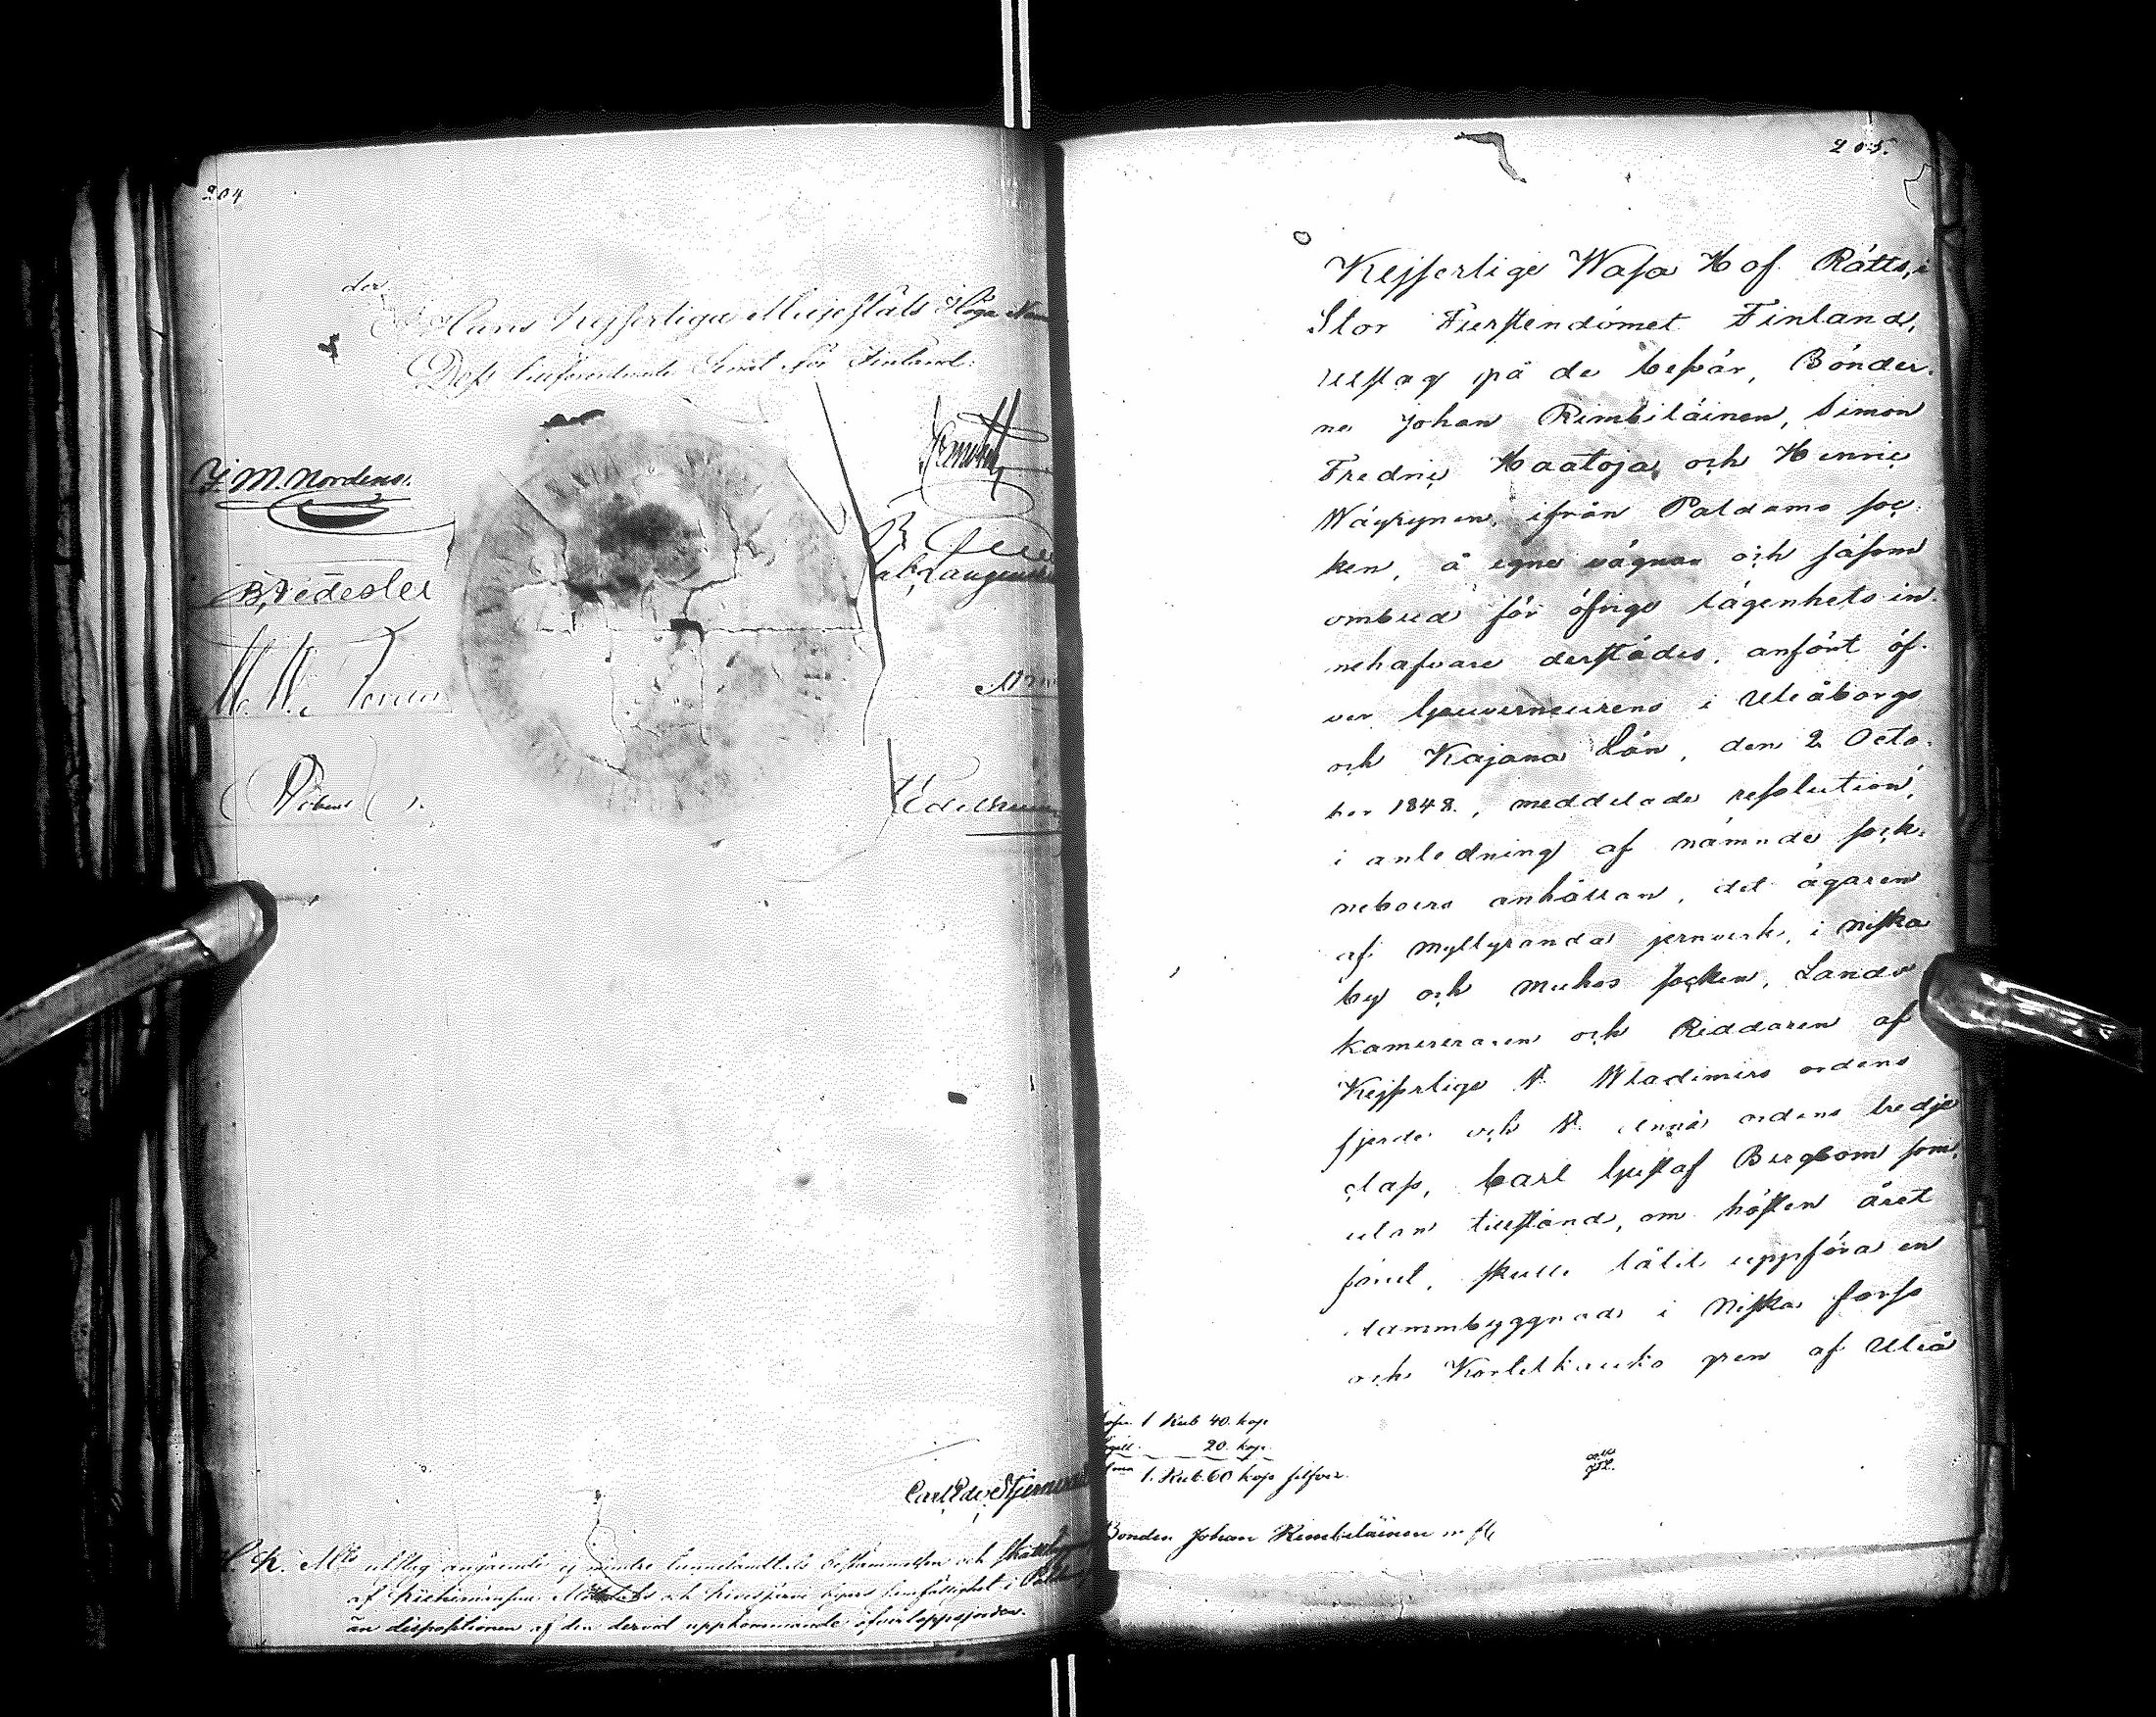 204
der.
I Hans Kejserliga Majestäts Höga Namn
Dess tillförordnade Senat för Finland:
J. M. Nordens.
Carl Edv. Stjernvall
H. K. Mts utslag angående ej mindre tunnelandtals bestämmelsen och skattläggn
af och byars samfällighet i Palda
än dispositionen af den dervid uppkommande öfverloppsjorden.
205.
Kejserlige Wasa Hof Rätts, i
Stor Furstendömet Finland,
utslag på de besvär, Bönder-
ne Johan Rimbiläinen, Simon
Fredric Haatoja och Henric
Wäyrynen, ifrån Paldamo soc-
ken, å egne vägnar och såsom
ombud för öfrige lägenhets in-
nehafvare derstädes, anfört öf-
ver Gouverneurens i Uleåborgs
och Kajana Län, den 2 Octo-
ber 1848., meddelade resolution,
i anledning af nämnde sock-
neboers anhållan, det ägaren
af Myllyranda jernverk, i Niska
by och Muhos socken, Lands
kamereraren och Riddaren af
Kejserlige St. Wladimirs ordens
fjerde och St. Annæ ordens tredje
class, Carl Gustaf Bergbom som,
utan tillstånd, om hösten året
förut, skulle låtit uppföra en
dammbyggnad i Niska forss
och gren af Uleå
Lösn 1 Rub 40. kop
20. kop.
1. Rub. 60 kop silfver.
Bonden Johan Rimbiläinen m fl